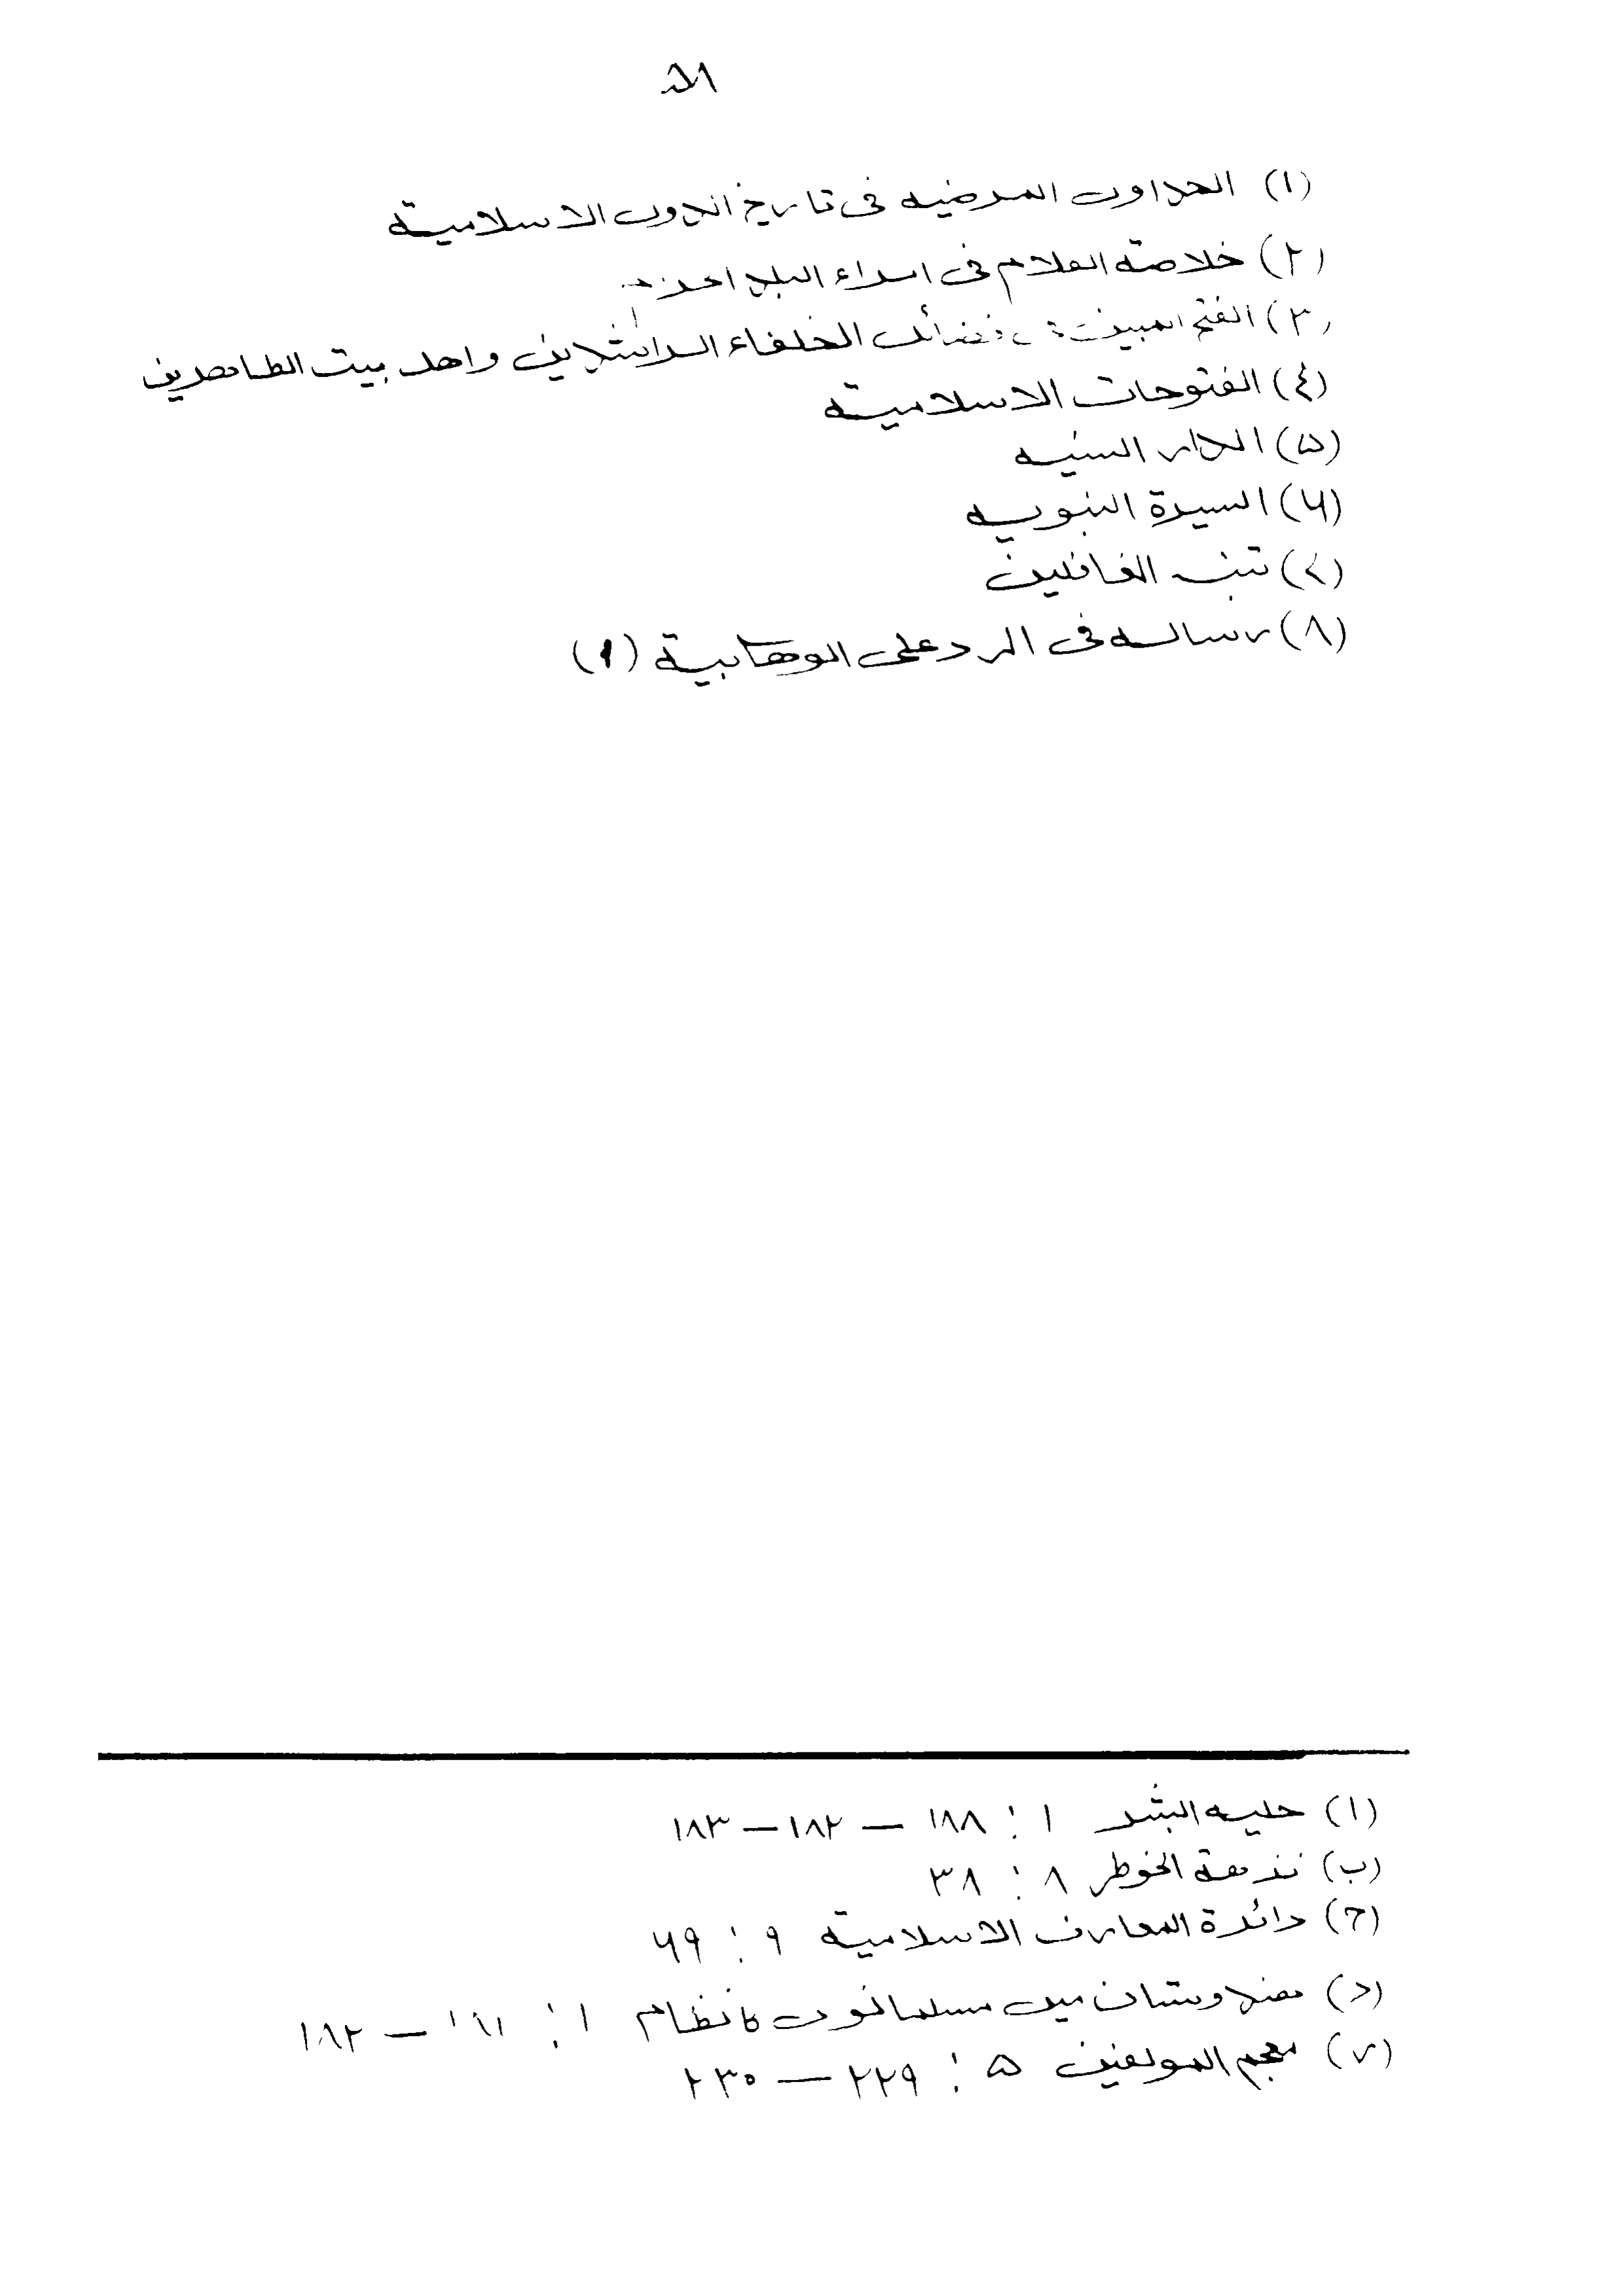 (١) الجداول المرضيه فى تاريخ الدول الاسلامية
(٢) خلاصة الكلام فى امراء البلد
(٣) الفتح المبين فضائل الخلفاء الراشدين واهل بيت الطاهرين
(٤) الفتوحات الاسلامية
(۵) الدرر السنيه
(۶) السيرة النبويه
(۷) تنبيه الغافلين
(٨) رساله فى الرد على الوهابية (١)
(١) حليه البشر ١ : ١٨٨ — ١٨٢ — ١٨٣
(ب) نزهة الخوطر ٨ : ٣٨
(ح) دائرة المعارف الاسلامية ٩ : ۶٩
(د) هندوستان ميں مسلمانوں كا نظام ١ : — ١٨٢
(ه) معجم المولفين ۵ : ٢٢٩ — ٢٣٠